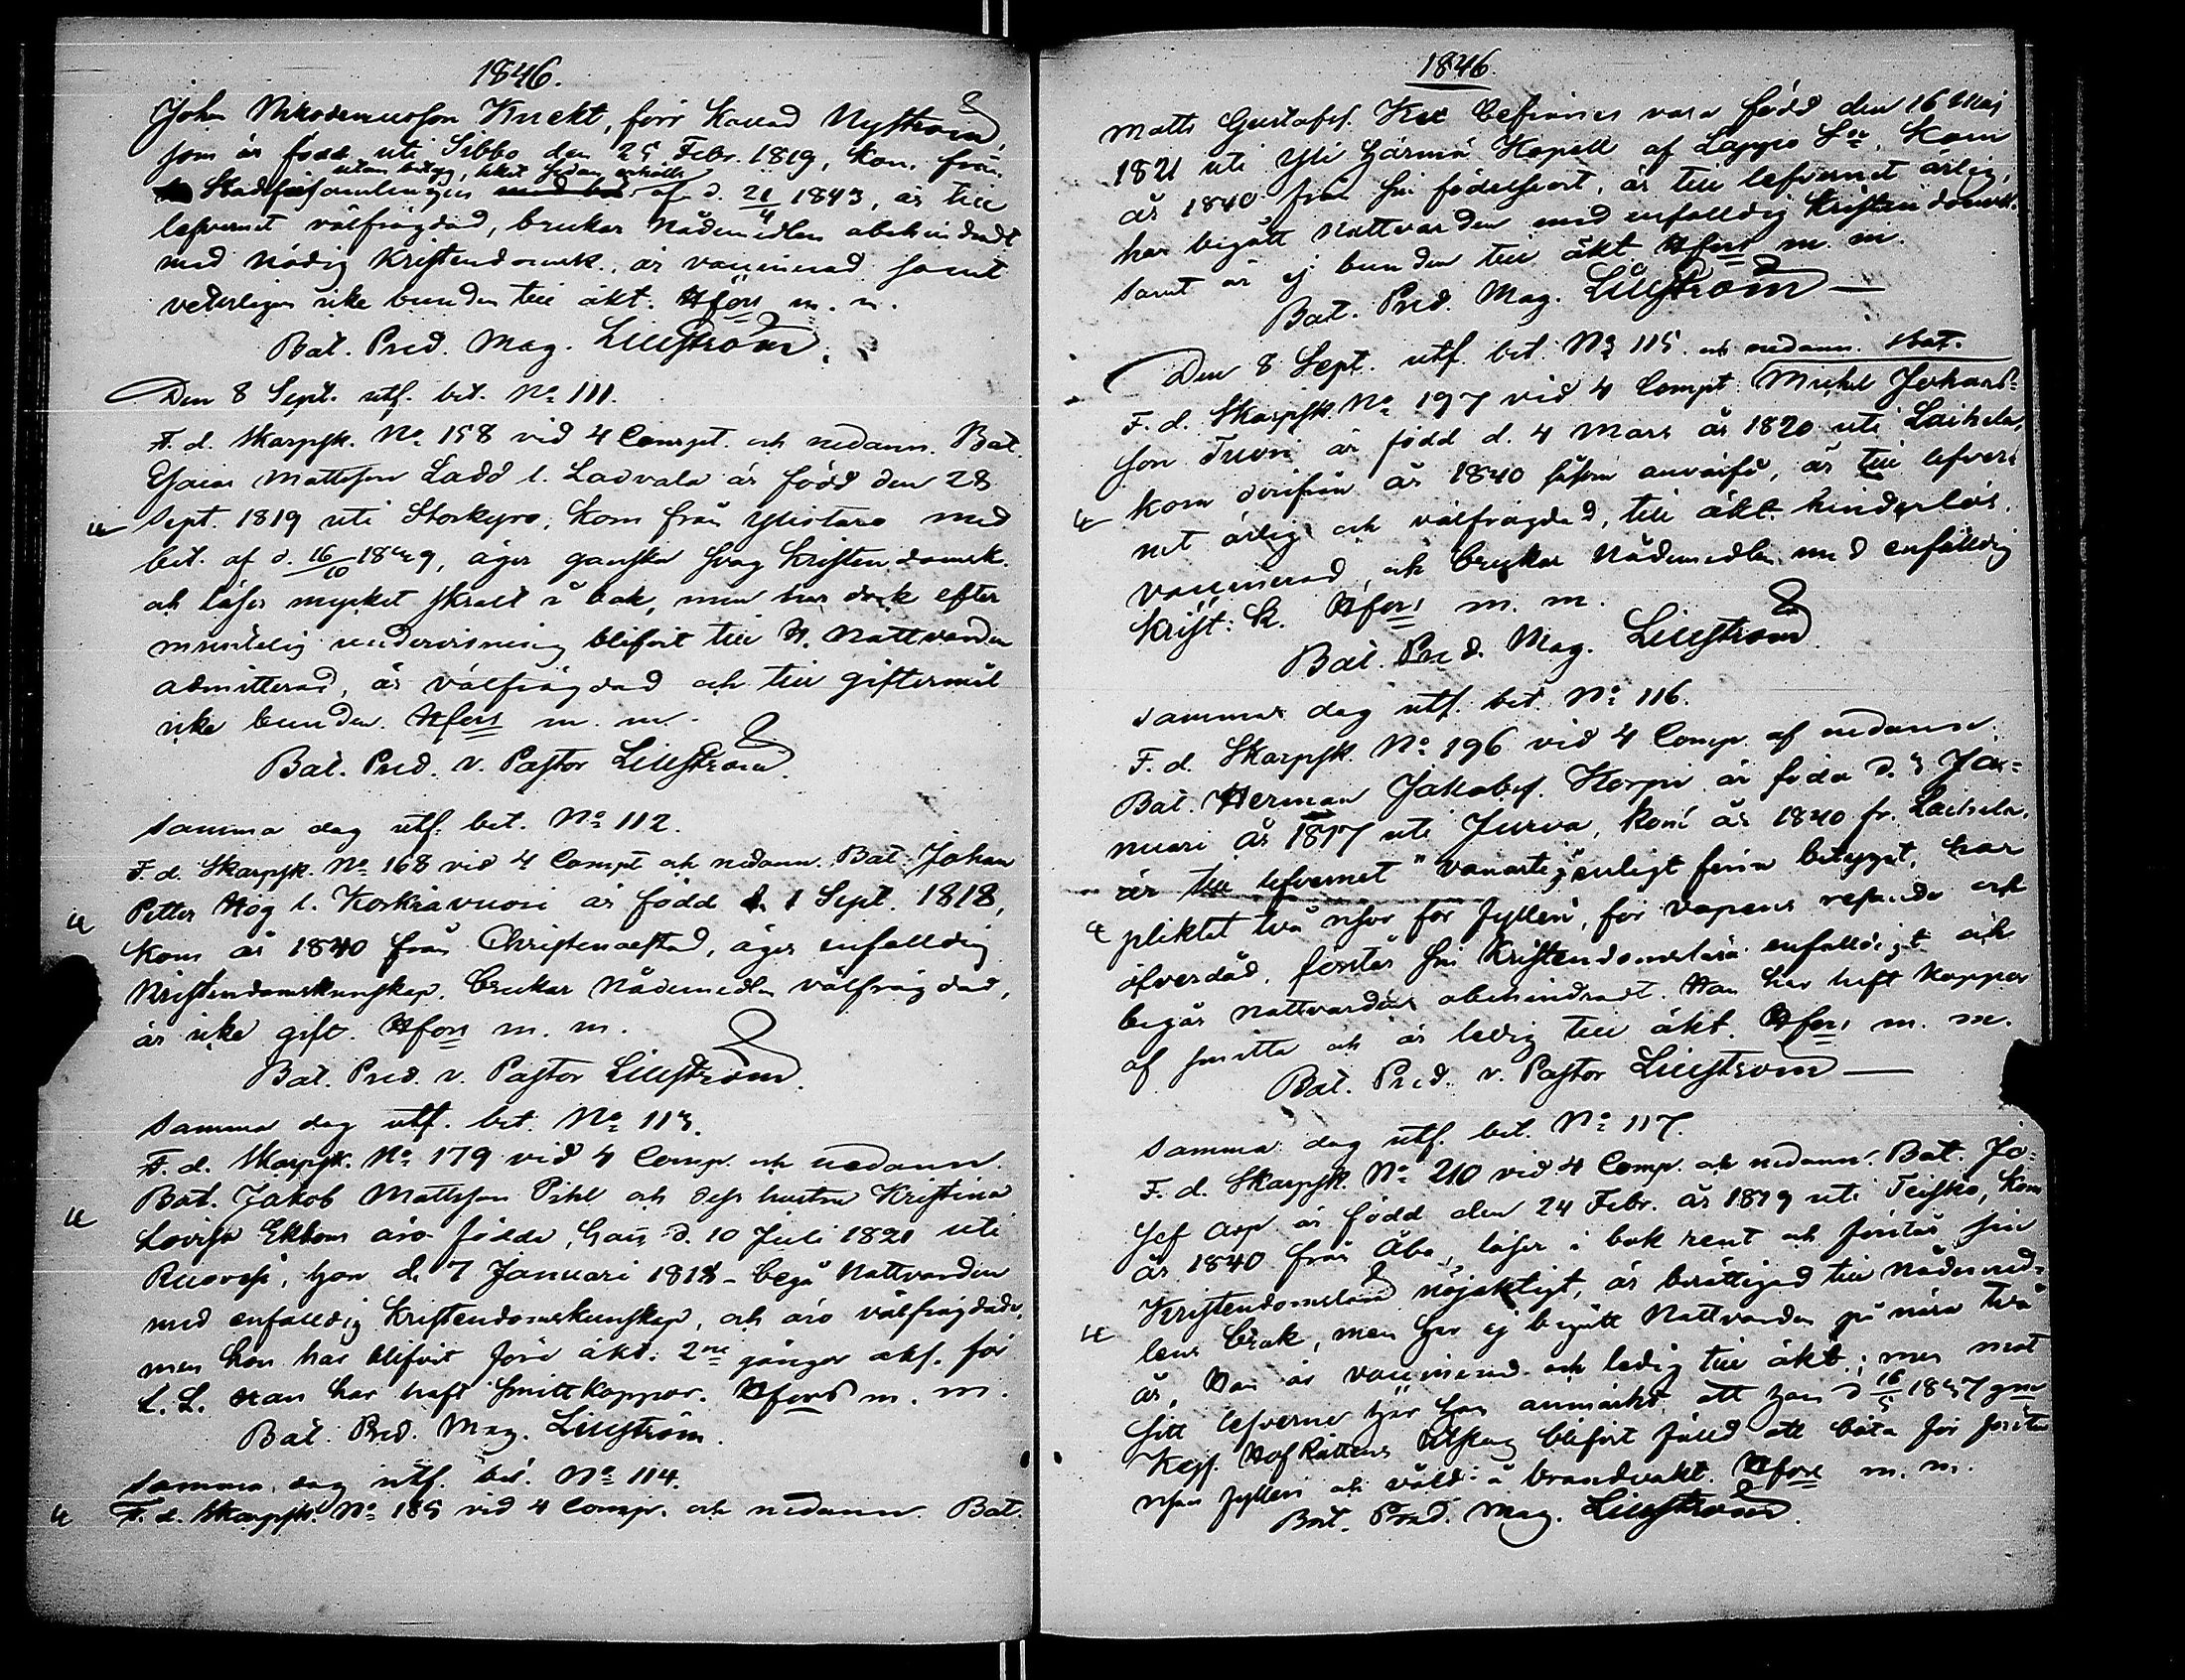 1846.
Johan Nikodemusson Knekt, förr kallad Nyström,
som är född uti Sibbo den 25 Febr. 1819, kom från
utan betyg, likt sedan erhållit
Stadsförsamlingen af d. 21/4 1843, är till
lefvernet välfrägdad, brukar Nådemedlen obehindradt
med nödig Kristendomsk., är vaccinerad samt
veterligen icke bunden till äkt. Hfors m. m.
Bat. Pred. Mag. Lillström.
Den 8 Sept. utf. bet. No 111.
F. d. Skarpsk. No 158 vid 4 Compt. och nedann. Bat.
Esaias Mattsson Ladd l. Ladvala är född den 28
Sept. 1819 uti Storkyro, kom från Ylistaro med
bet. af d. 16/10 1839, äger ganska svag Kristendomsk.
och läser mycket skralt i bok, men har dock efter
muntelig undervisning blifvit till H. Nattvarden
admitterad, är välfrägdad och till giftermål
icke bunden. Hfors m. m.
Bat. Pred. v. Pastor Lillström.
Samma dag utf. bet. No 112.
F. d. Skarpsk. No 168 vid 4 Compt och nedann. Bat. Johan
Petter Hög l. Korkiavuori är född d. 1 Sept. 1818,
kom år 1840 från Christinaestad, äger enfalldig
Kristendomskunskap, brukar Nådemedlen välfrägdad,
är icke gift. Hfors m. m.
Bat. Pred. v. Pastor Lillström.
Samma dag utf. bet. No 113.
F. d. Skarpsk. No 179 vid 4 Comp. och nedann.
Bat. Jakob Mattsson Pihl och dess hustru Kristina
Lovisa Ekbom äro födde, han d. 10 Juli 1821 uti
Ruovesi, hon d. 7 Januari 1818 - begå Nattvarden
med enfalldig Kristendomskunskap, och äro välfrägdade,
men hon har blifvit före äkt. 2ne gånger absf. för
L. L. Han har haft smittkoppor. Hfors m. m.
Bat. Pred. Mag. Lillström.
Samma dag utf. bet. No 114.
F. d. Skarpsk. No 185 vid 4 Comp. och nedann. Bat.
1846.
Matts Gustafss. befinnes vara född den 16 Maj
1821 uti Yli Härmä Kapell af Lappo Sn, kom
år 1840 från sin födelseort, är till lefvernet ärlig,
har begått Nattvarden med enfalldig Kristendomsk.
samt är ej bunden till äkt. Hfors m. m.
Bat. Pred. Mag. Lillström
Den 8 Sept. utf. bet. No 115. och nedann. Bat.
F. d. Skarpsk. No 197 vid 4 Compt. Michel Johans=
son Tuori är född d. 4 Mars år 1820 uti Laihela,
kom derifrån år 1840 såsom anvärfd, är till lefver=
net ärlig och välfrägdad, till äkt. hinderlös,
vaccinerad, och brukar Nådemedlen med enfalldig
Krist: k. Hfors m. m.
Bat. Pred. Mag. Lillström
Samma dag utf. bet No 116.
F. d. Skarpsk. No 196 vid 4 Comp. af nedann.
Bat. Herman Jakobss. Korpi är född d. 3 Ja=
nuari år 1817 uti Jurva, kom år 1840 fr. Laihela,
är till lefvernet "vanartig" enligt förra betyget, har
pliktet två resor för fylleri, för vapens och
öfverdåd, förstår sin Kristendomslära enfalldigt och
begår Nattvarden obehindradt. Han har haft koppor
af smitta och är ledig till äkt. Hfors m. m.
Bat. Pred. v. Pastor Lillström
Samma dag utf. bet. No 117.
F. d. Skarpsk. No 210 vid 4 Comp. och nedann. Bat. Jo=
sef Asp är född den 24 Febr. år 1819 uti Teisko, kom
år 1840 från Åbo, läser i bok rent och förstår sin
Kristendomslära nöjaktigt, är berättigad till Nådemed=
lens bruk, men har ej begått Nattvarden på nära två
år. Han är vaccinerad och ledig till äkt.; men mot
sitt lefverne har han anmärkt att han d. 16/5 1837 gm
Kejs. HofRättens Utslag blifvit fälld att böta för första
resan fylleri och våld å brandvakt. Hfors m. m.
Bat. Pred. Mag. Lillström.